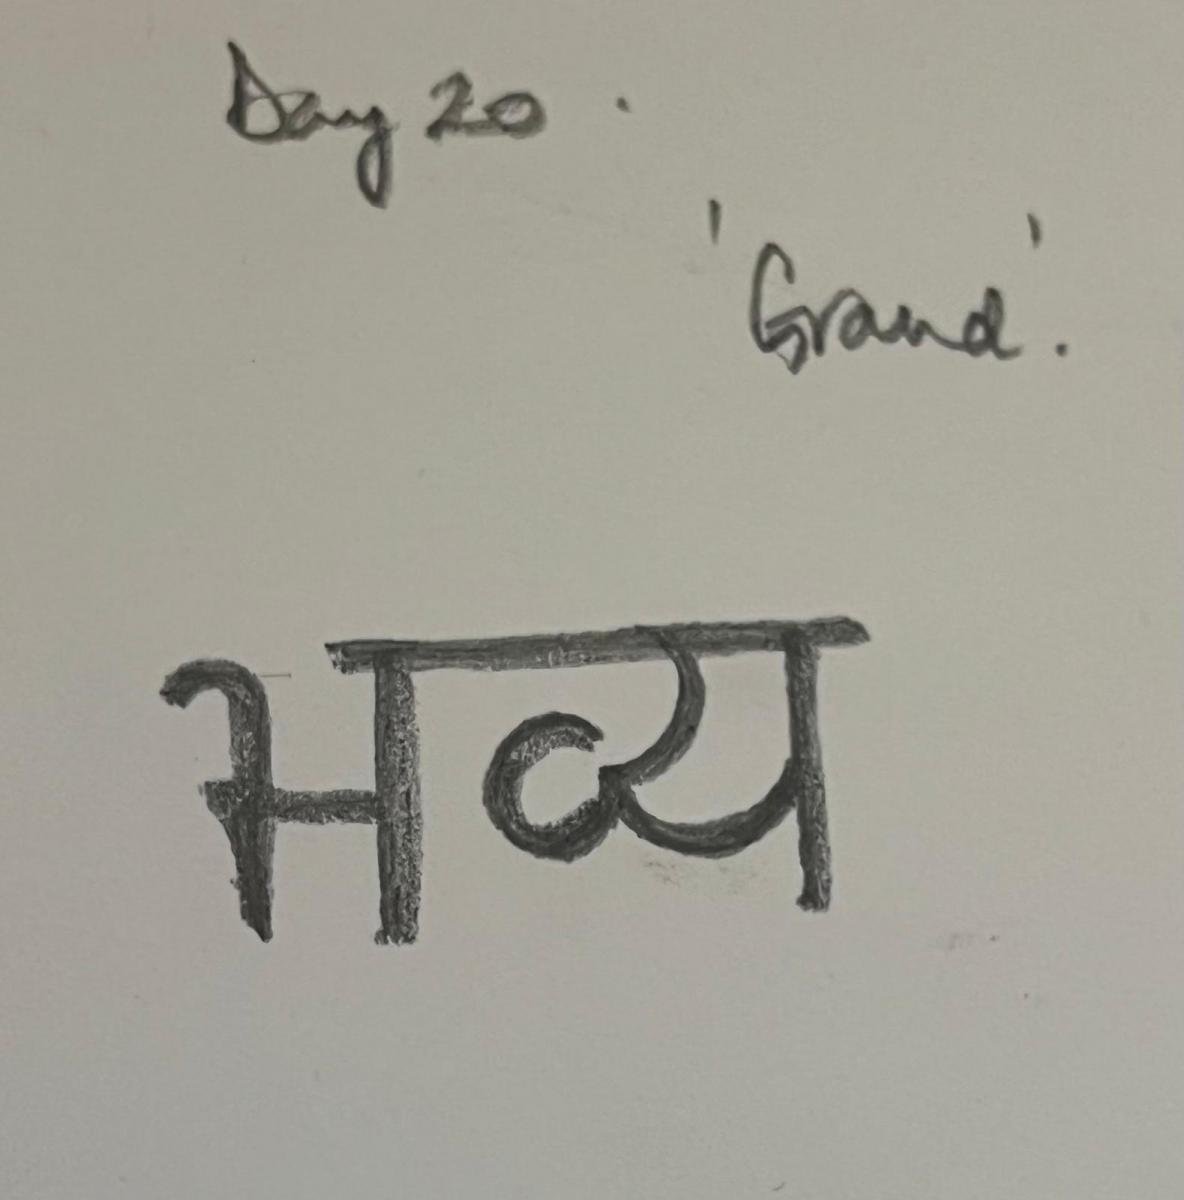 Day 20.
'Grand'.
भव्य